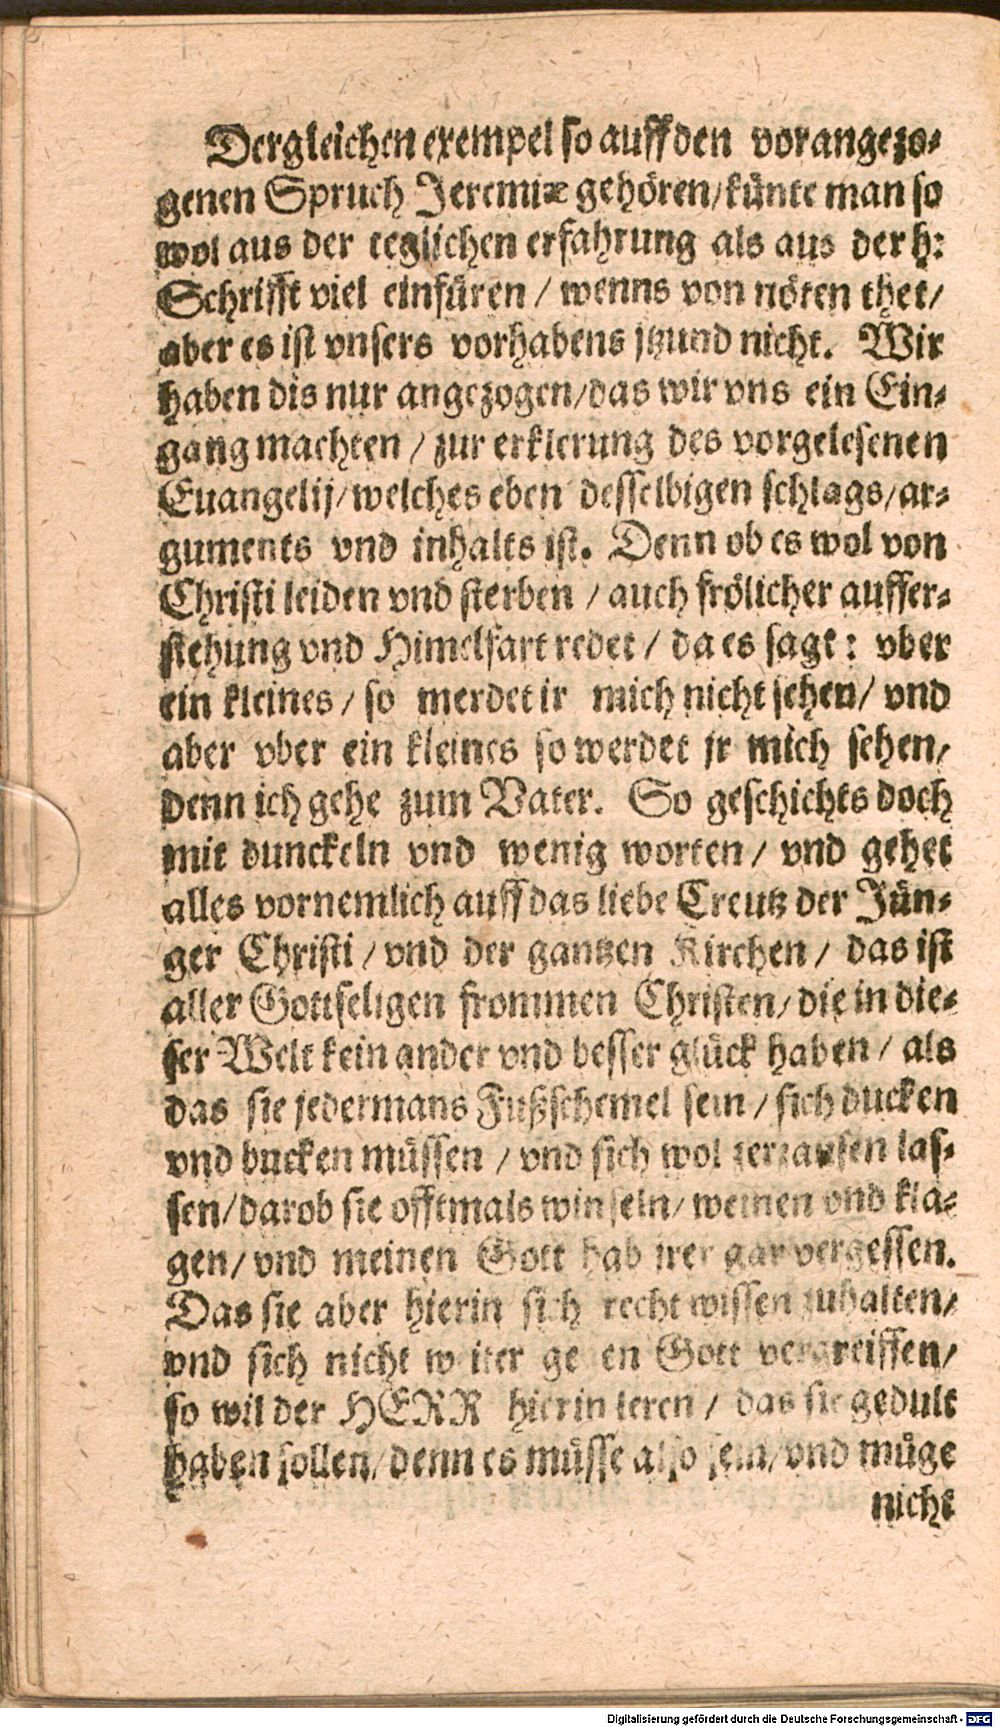 Dergleichen exempel so auff den vorangezo-
genen Spruch Jeremiæ gehören/künte man so
wol aus der teglichen erfahrung als aus der h:
Schrifft viel einfüren / wenns von nöten thet/
aber es ist vnsers vorhabens jtzund nicht. Wir
haben dis nur angezogen/das wir vns ein Ein-
gang machten / zur erklerung des vorgelesenen
Euangelij/welches eben desselbigen schlags/ar-
guments vnd inhalts ist. Denn ob es wol von
Christi leiden vnd sterben / auch frölicher auffer-
stehung vnd Himelfart redet / da es sagt: vber
ein kleines / so merdet ir mich nicht sehen/ vnd
aber vber ein kleines so werdet jr mich sehen/
denn ich gehe zum Vater. So geschichts doch
mit dunckeln vnd wenig worten/ vnd gehet
alles vornemlich auff das liebe Creutz der Jün-
ger Christi / vnd der gantzen Kirchen / das ist
aller Gottseligen frommen Christen/ die in die-
ser Welt kein ander vnd besser glück haben / als
das sie jedermans Fußschemel sein / sich ducken
vnd bucken müssen / vnd sich wol zerzausen las-
sen/darob sie offtmals winseln/ weinen vnd kla-
gen/ vnd meinen Gott hab irer gar vergessen.
Das sie aber hierin sich recht wissen zuhalten/
vnd sich nicht weiter gegen Gott vergreiffen/
so wil der HERR hierin leren / das sie gedult
haben sollen/denn es müsse also sein/vnd müge
nicht
Digitalisierung gefördert durch die Deutsche Forschungsgemeinschaft - DFG